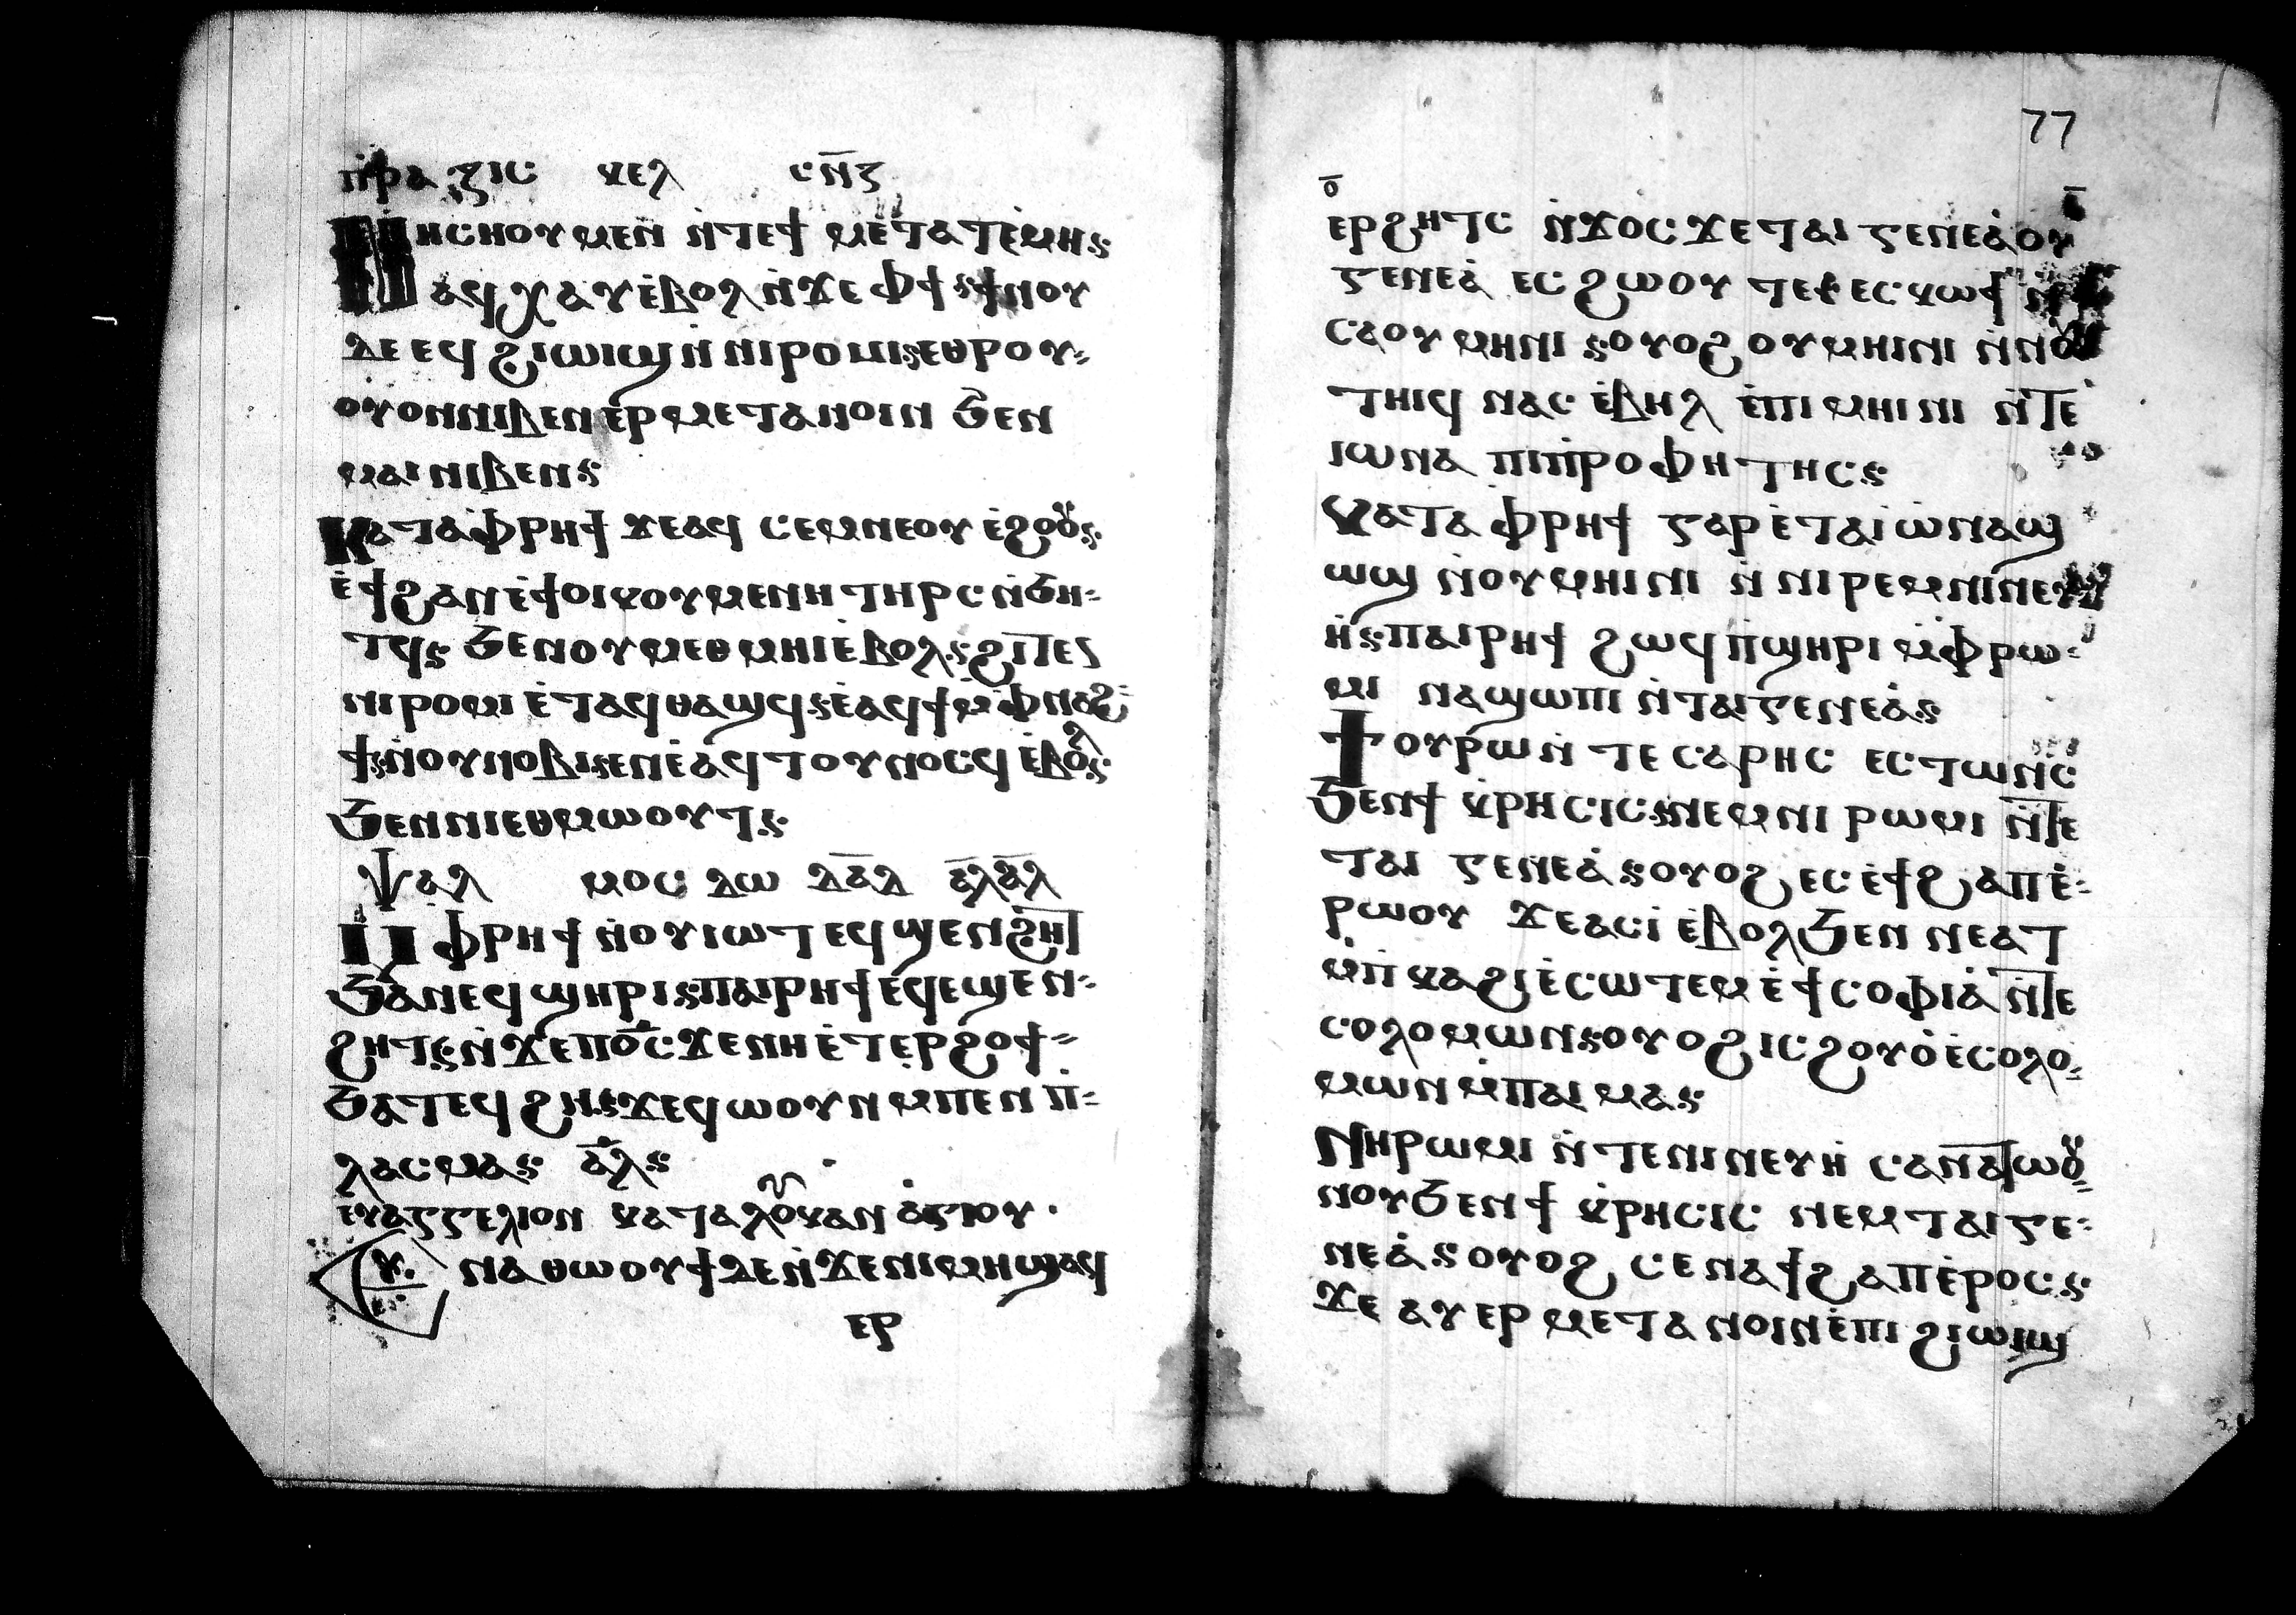 ⲡⲣⲁⲝⲓⲥ ⲕⲉⲗ ⲥⲛ̅ⲍ
ⲛⲓⲥⲏⲟⲩ ⲙⲉⲛ ⲛ̀ⲧⲉϯ ⲙⲉⲧⲁⲧⲉ̀ⲙⲓ⳾
ⲁϥⲭⲁⲩ ⲉ̀ⲃⲟⲗ ⲛ̀ϫⲉ ⲫϯ⳾ϯⲛⲟⲩ
ⲇⲉ ⲉϥϩⲓⲱⲓϣ ⲛ̀ⲛⲓⲣⲱⲙⲓ⳾ⲉⲑⲣⲟⲩ⸗
ⲟⲩⲟⲛⲛⲓⲃⲉⲛ ⲉⲣⲙⲉⲧⲁⲛⲟⲓⲛ ϧⲉⲛ
ⲙⲁⲓ ⲛⲓⲃⲉⲛ⳾
ⲕⲁⲧⲁ ⲫⲣⲏϯ ϫⲉⲁϥ ⲥⲉⲙⲛⲉⲟⲩ ⲉ̀ϩⲟⲟⲩ⳾
ⲉ̀ϯϩⲁⲡ ⲉ̀ϯⲟⲓⲕⲟⲩⲙⲉⲛⲏ ⲧⲏⲣⲥ ⲛ̀ϧⲏ⸗
ⲧϥ⳾ ϧⲉⲛ ⲟⲩⲙⲉⲑⲙⲏⲓ ⲉ̀ⲃⲟⲗ⳾ϩⲓⲧⲉⲛ
ⲡⲓⲣⲱⲙⲓ ⲉ̀ⲧⲁϥⲑⲁϣϥ⳾ⲉ̀ⲁϥϯ ⲙ̀ⲫⲛⲁϩ
ϯ⳾ⲛ̀ⲟⲩⲟⲛ ⲛⲓⲃⲉⲛ ⲉ̀ⲁϥⲧⲟⲩⲛⲟⲥϥ ⲉ̀ⲃⲟⲗ⳾
ϧⲉⲛ ⲛⲓⲉⲑⲙⲱⲟⲩⲧ⳾
ⲯⲁⲗ ⲙⲟⲥ ⲇⲱ ⲇⲁ̅ⲇ ⲁ̅ⲗⲁ̅ⲗ
ⲙ̀ⲫⲣⲏϯ ⲛ̀ⲟⲩⲓⲱⲧ ⲉϥϣⲉⲛϩⲏⲧ
ϧⲁ ⲛⲉϥϣⲏⲣⲓ⳾ⲡⲁⲓⲣⲏϯ ⲉϥⲉϣⲉⲛ⸗
ϩⲏⲧ⳾ⲛ̀ϫⲉ ⲡⲟ̅ⲥ ϫⲉ ⲛⲏ ⲉ̀ⲧⲉⲣϩⲟϯ⸗
ϧⲁⲧⲉϥϩⲏ⳾ϫⲉϥⲥⲱⲟⲩⲛ ⲙ̀ⲡⲉⲛ ⲡ̀⸗
ⲗⲁⲥⲙⲁ⳾ ⲁ̅ⲗ⳾
ⲉⲩⲁⲅⲅⲉⲗⲓⲟⲛ ⲕⲁⲧⲁ ⲗⲟⲩⲕⲁⲛ ⲁ̀ⲅⲓⲟⲩ
ⲛⲁⲑⲱⲟⲩϯ ⲇⲉ ⲛ̀ϫⲉ ⲛⲓⲙⲏϣ ⲁϥ
ⲉⲣ
77
ⲟ̅
ⲉⲣϩⲏⲧⲥ ⲛ̀ϫⲟⲥ ϫⲉ ⲧⲁⲓ ⲅⲉⲛⲉⲁ̀ ⲟⲩ
ⲅⲉⲛⲉⲁ̀ ⲉⲥϩⲱⲟⲩ ⲧⲉ⳾ⲉⲥⲕⲱϯ ⲛ̀
ⲥⲁⲟⲩⲙⲏⲓⲛⲓ ⳾ⲟⲩⲟϩ ⲟⲩⲙⲏⲓⲛⲓ ⲛ̀ⲛⲟⲩ
ⲧⲏⲓϥ ⲛⲁⲥ ⲉ̀ⲃⲏⲗ ⲉ̀ⲡⲓⲙⲏⲓⲛⲓ ⲛ̀ⲧⲉ
ⲓⲱⲛⲁ ⲡⲓⲡ̀ⲣⲟⲫⲏⲧⲏⲥ⳾
ⲕⲁⲧⲁ ⲫⲣⲏϯ ⲅⲁⲣ ⲉ̀ⲧⲁ ⲓⲱ̀ⲛⲁ ϣ
ⲱⲡⲓ ⲛ̀ⲟⲩⲙⲏⲓⲛⲓ ⲛ̀ⲛⲓⲣⲉⲙⲛⲓⲛⲉⲩ
ⲏ̀⳾ⲡⲁⲓⲣⲏϯ ϩⲱϥ ⲡ̀ϣⲏⲣⲓ ⲙ̀ⲫⲣⲱ⸗
ⲙⲓ ⲛⲁϣⲱⲡⲓ ⲛ̀ⲧⲁⲓⲅⲉⲛⲉⲁ̀⳾
ϯⲟⲩⲣⲱ ⲛ̀ⲧⲉ ⲥⲁⲣⲏⲥ ⲉⲥⲧⲱⲛⲥ
ϧⲉⲛ ϯⲕⲣⲏⲥⲓⲥ⳾ⲛⲉⲙ ⲛⲓⲣⲱⲙⲓ ⲛ̀ⲧⲉ
ⲧⲁⲓ ⲅⲉⲛⲉⲁ̀⳾ⲟⲩⲟϩ ⲉⲥⲉ̀ϯϩⲁⲡ ⲉ̀⸗
ⲣⲱⲟⲩ ϫⲉ ⲁⲥⲓ̀ ⲉ̀ⲃⲟⲗϧⲉⲛ ⲛⲉⲁⲧ
ⲙ̀ⲡ̀ⲕⲁϩⲓ ⲉ̀ⲥⲱⲧⲉⲙ ⲉ̀ϯⲥⲟⲫⲓⲁ̀ ⲛ̀ⲧⲉ
ⲥⲟⲗⲟⲙⲱⲛ⳾ⲟⲩⲟϩ ⲓⲥ ϩⲟⲩⲟ̀ ⲉ̀ⲥⲟⲗⲟ⸗
ⲙⲱⲛ ⲙ̀ⲡⲁⲓ ⲙⲁ⳾
ⲛⲓⲣⲱⲙⲓ ⲛ̀ⲧⲉ ⲛⲓⲛⲉⲩⲏ̀ ⲥⲉⲛⲁⲧⲱⲟⲩ⸗
ⲛⲟⲩ ϧⲉⲛ ϯⲕⲣⲏⲥⲓⲥ ⲛⲉⲙ ⲧⲁⲓ ⲅⲉ⸗
ⲛⲉⲁ̀⳾ⲟⲩⲟϩ ⲥⲉⲛⲁϯϩⲁⲡ ⲉ̀ⲣⲟⲥ⳾
ϫⲉ ⲁⲩⲉⲣⲙⲉⲧⲁⲛⲟⲓⲛ ⲉ̀ⲡⲓϩⲓⲱⲓϣ